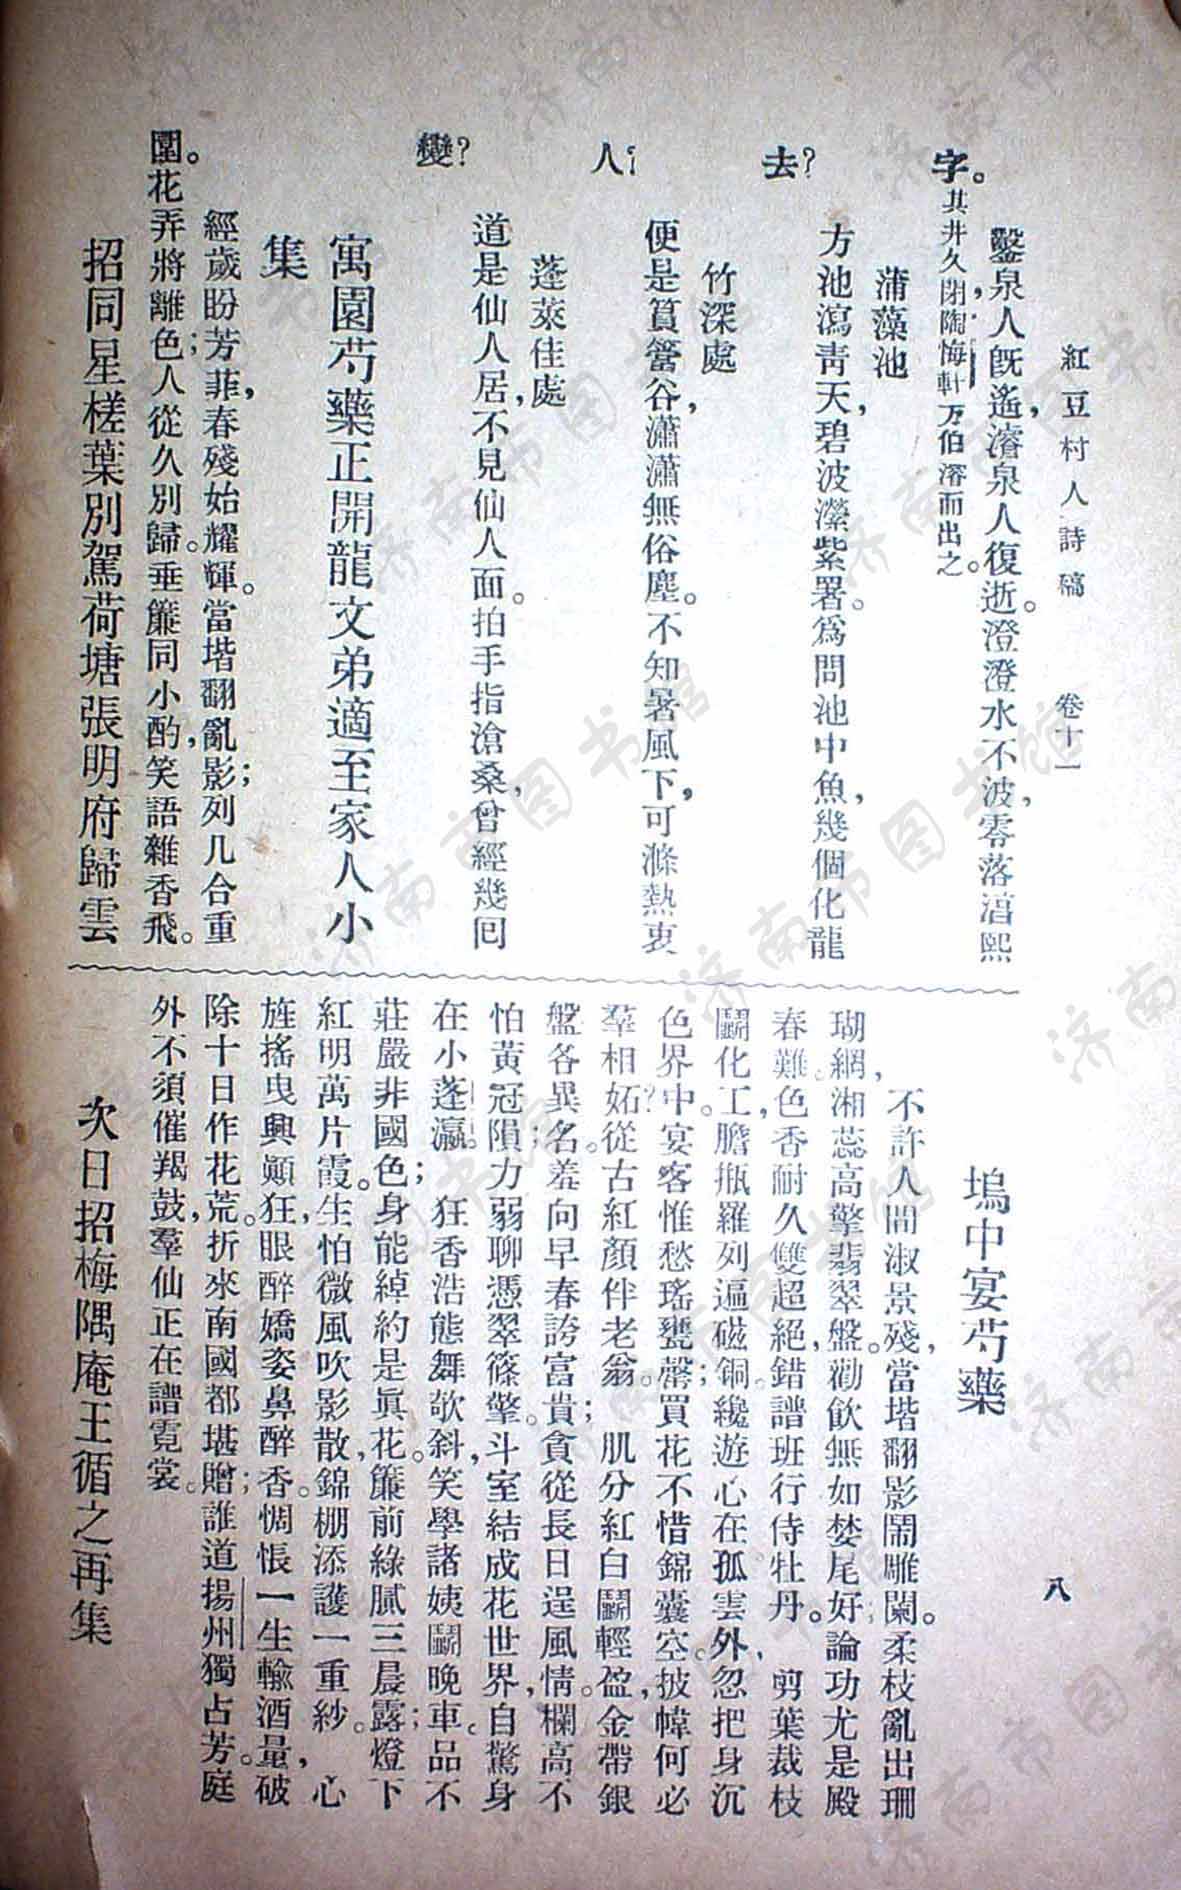 紅豆村人詩稿　卷十一　八
鑿泉人旣遙，濬泉人復逝。澄澄水不波，零落淯熙
字。其井久閉，陶悔軒方伯溶而出之。
蒲藻池
方池瀉靑天，碧波瀠紫署。爲問池中魚，幾個化龍
去？
竹深處
便是篔簹谷，瀟瀟無俗塵。不知暑風下，可滌熱衷
人？
蓬萊佳處
道是仙人居，不見仙人面。拍手指滄桑，曾經幾囘
變？
寓園芍藥正開龍文弟適至家人小
集
經歲盼芳菲，春殘始耀輝。當堦翻亂影；列几合重
圍。花弄將離色；人從久別歸。垂簾同小酌，笑語雜香飛。
招同星槎葉別駕荷塘張明府歸雲
塢中宴芍藥
不許人間淑景殘，當堦翻影鬧雕闌。柔枝亂出珊
瑚網，湘蕊高擎翡翠盤。勸飮無如婪尾好；論功尤是殿
春難。色香耐久雙超絕，錯譜班行侍牡丹。　剪葉裁枝
鬭化工，膽瓶羅列遍磁銅。纔遊心在孤雲外，忽把身沉
色界中。宴客惟愁瑤甕罄；買花不惜錦囊空。披幃何必
羣相妬？從古紅顏伴老翁。　肌分紅白鬭輕盈，金帶銀
盤各異名。羞向早春誇富貴；貪從長日逞風情。欄高不
怕黃冠隕；力弱聊憑翠篠擎。斗室結成花世界，自驚身
在小蓬瀛。　狂香浩態舞欹斜，笑學諸姨鬭晚車。品不
莊嚴非國色；身能綽約是眞花。簾前綠膩三晨露；燈下
紅明萬片霞。生怕微風吹影散，錦棚添護一重紗。　心
旌搖曳興顚狂，眼醉嬌姿鼻醉香。惆悵一生輸酒量，破
除十日作花荒。折來南國都堪贈；誰道揚州獨占芳。庭
外不須催羯鼓，羣仙正在譜霓裳。
次日招梅隅庵王循之再集